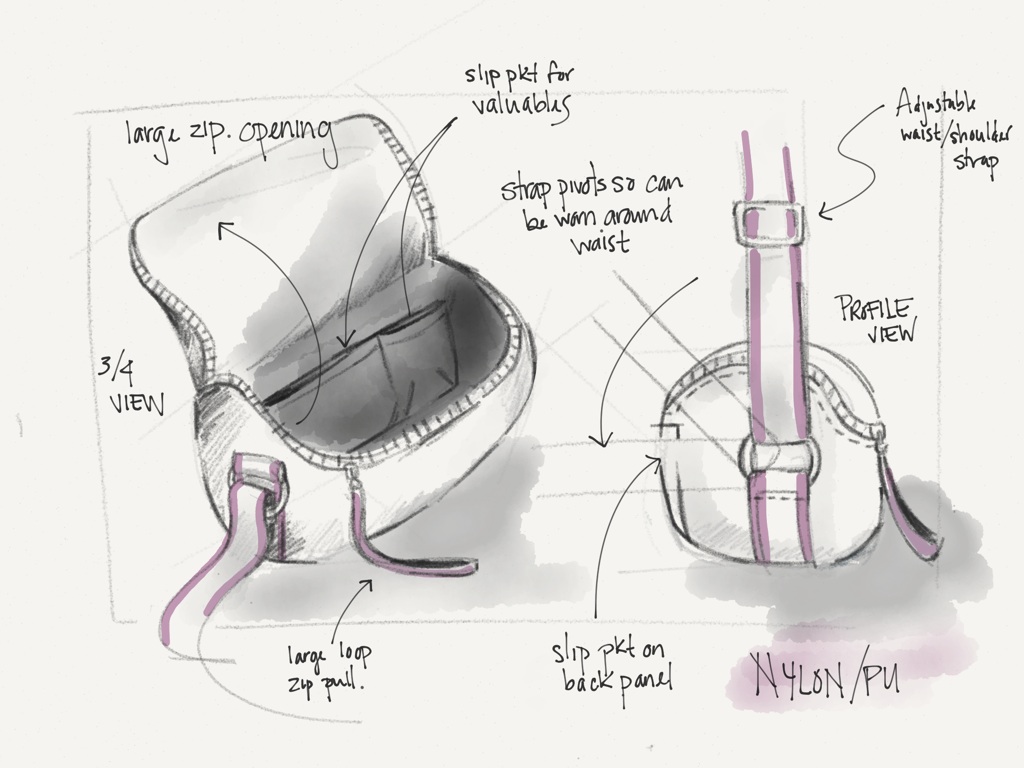 slip pkt for
valuables
large zip. opening
Adjustable
waist/shoulder
strap
strap pivots so can
be worn around
waist
PROFILE
VIEW
3/4
VIEW
large loop
zip pull.
slip pkt on
back panel
NYLON/PU